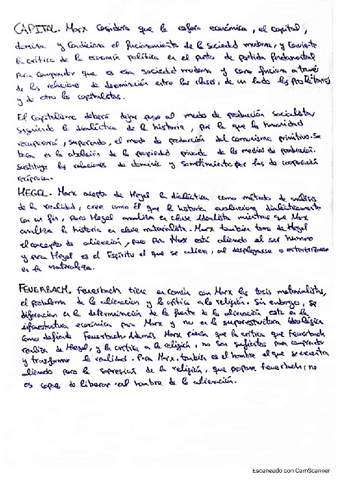 CAPITAL. Marx considera que la esfera económica, el capital,
domina y condiciona el funcionamiento de la sociedad moderna, y convierte
la crítica de la economía política en el punto de partida fundamental
para comprender que es esa sociedad moderna y como funciona a través
de las relaciones de dominación entre las clases, de un lado los proletarios
y de otro los capitalistas.
El capitalismo deberá dejar paso al modo de producción socialista
siguiendo la dialéctica de la historia, por la que la humanidad
recuperará, superando, el modo de producción del comunismo primitivo. Se
basa en la abolición de la propiedad privada de los medios de producción.
Sustituye las relaciones de dominio y sometimiento por las de cooperación
recíproca.
HEGEL. Marx acepta de Hegel la dialéctica como método de análisis
de la realidad, cree como él que la historia evoluciona dialécticamente
con un fin, pero Hegel analiza en clave idealista mientras que Marx
analiza la historia en clave materialista. Marx también toma de Hegel
el concepto de alienación, pero para Marx está alienado el ser humano
y para Hegel es el Espíritu el que se aliena, al desplegarse o exteriorizarse
en la naturaleza.
FEUERBACH. Feuerbach tiene en común con Marx las tesis materialistas,
el problema de la alienación y la crítica a la religión. Sin embargo, se
diferencian en la determinación de la fuente de la alienación está en la
infraestructura económica para Marx y no en la superestructura ideológica
como defiende Feuerbach. Además Marx piensa que la crítica que Feuerbach
realiza de Hegel, y la crítica a la religión, no son suficientes para comprender
y transformar la realidad. Para Marx también es el hombre el que se encuentra
alienado pero la supresión de la religión, que propone Feuerbach, no
es capaz de liberar al hombre de la alienación.
Escaneado con CamScanner